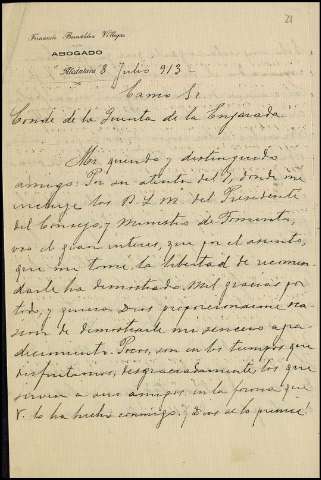 21
Abogado
Alcántara 8 Julio 913
Excmo Sr
Conde de la Quinta de la Enjarada
Mi querido y distinguido
amigo: Por su atenta del 7, donde me
incluye los B.L.M. del Presidente
del Consejo, y Ministro de Fomento,
veo el gran interes, que por el asunto,
que me tomé la libertad de recomen-
darle ha demostrado. Mil gracias por
todo, y quiera Dios proporcionarme oca-
sion de demostrarle mi sincero agra-
decimiento. Pocos, son en los tiempos que
disfrutamos, desgraciadamente, los que
sirven a sus amigos, en la forma que
V. lo ha hecho conmigo: y Dios se lo premie